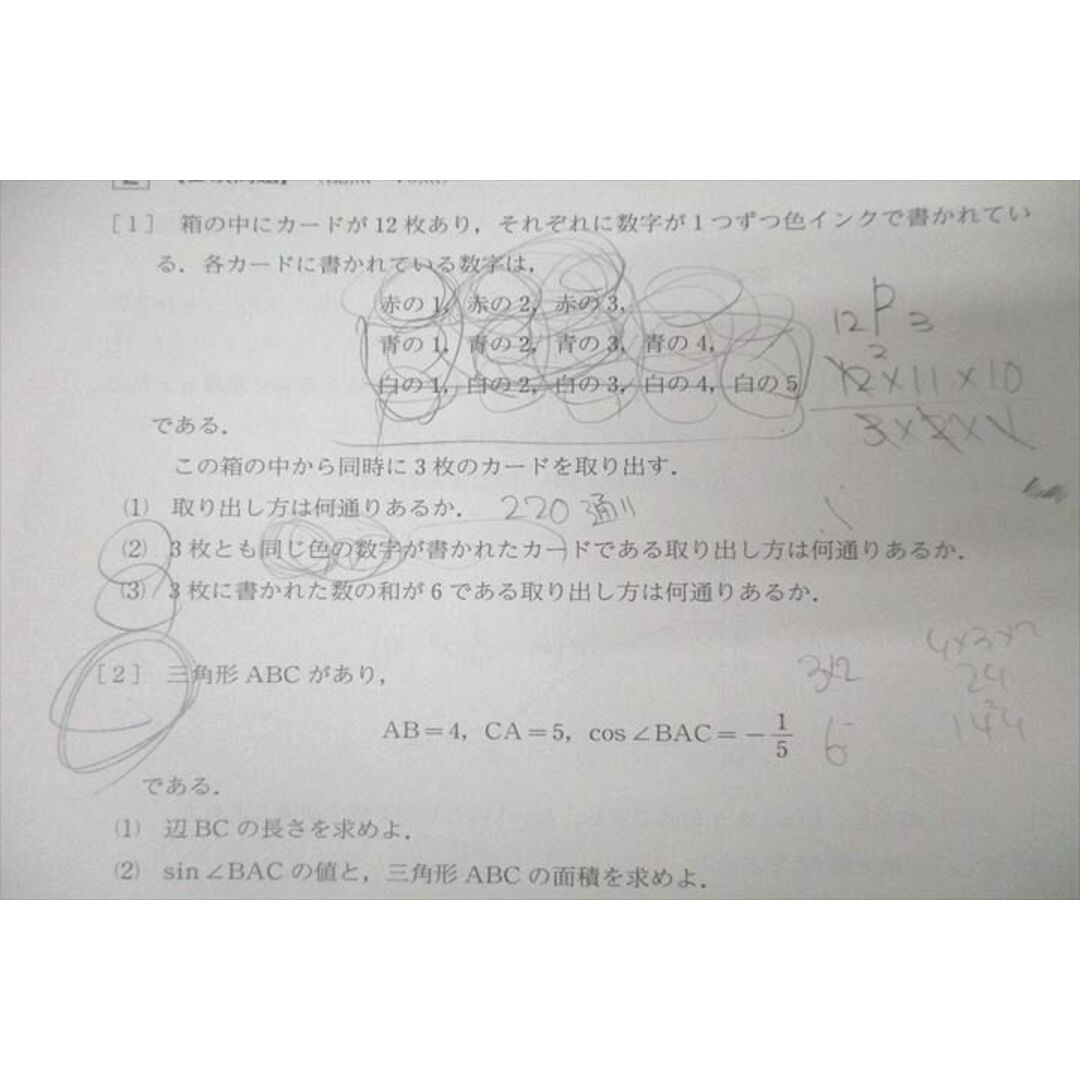 [1] 箱の中にカードが12枚あり，それぞれに数字が1つずつ色インクで書かれてい
る．各カードに書かれている数字は，
赤の1, 赤の2, 赤の3,
青の1, 青の2, 青の3, 青の4,
白の1, 白の2, 白の3, 白の4, 白の5
である．
12P3
12×11×10
3×2×1
この箱の中から同時に3枚のカードを取り出す．
(1) 取り出し方は何通りあるか． 220通り
(2) 3枚とも同じ色の数字が書かれたカードである取り出し方は何通りあるか．
(3) 3枚に書かれた数の和が6である取り出し方は何通りあるか．
[2] 三角形ABCがあり，
AB=4, CA=5, cos∠BAC=−1/5
6
4×3×2
24
144
である．
(1) 辺BCの長さを求めよ．
(2) sin∠BACの値と，三角形ABCの面積を求めよ．